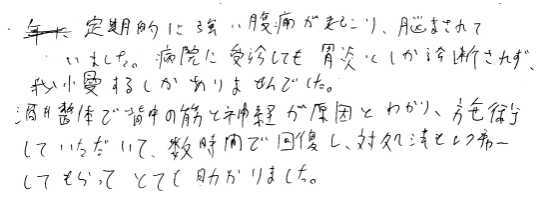 定期的に強い腹痛が起こり、悩まされて
いました。病院に受診しても胃炎としか診断されず、
我慢するしかありませんでした。
整体で背中の筋と神経が原因とわかり、施術
していただいて、数時間で回復し、対処法も
してもらってとても助かりました。